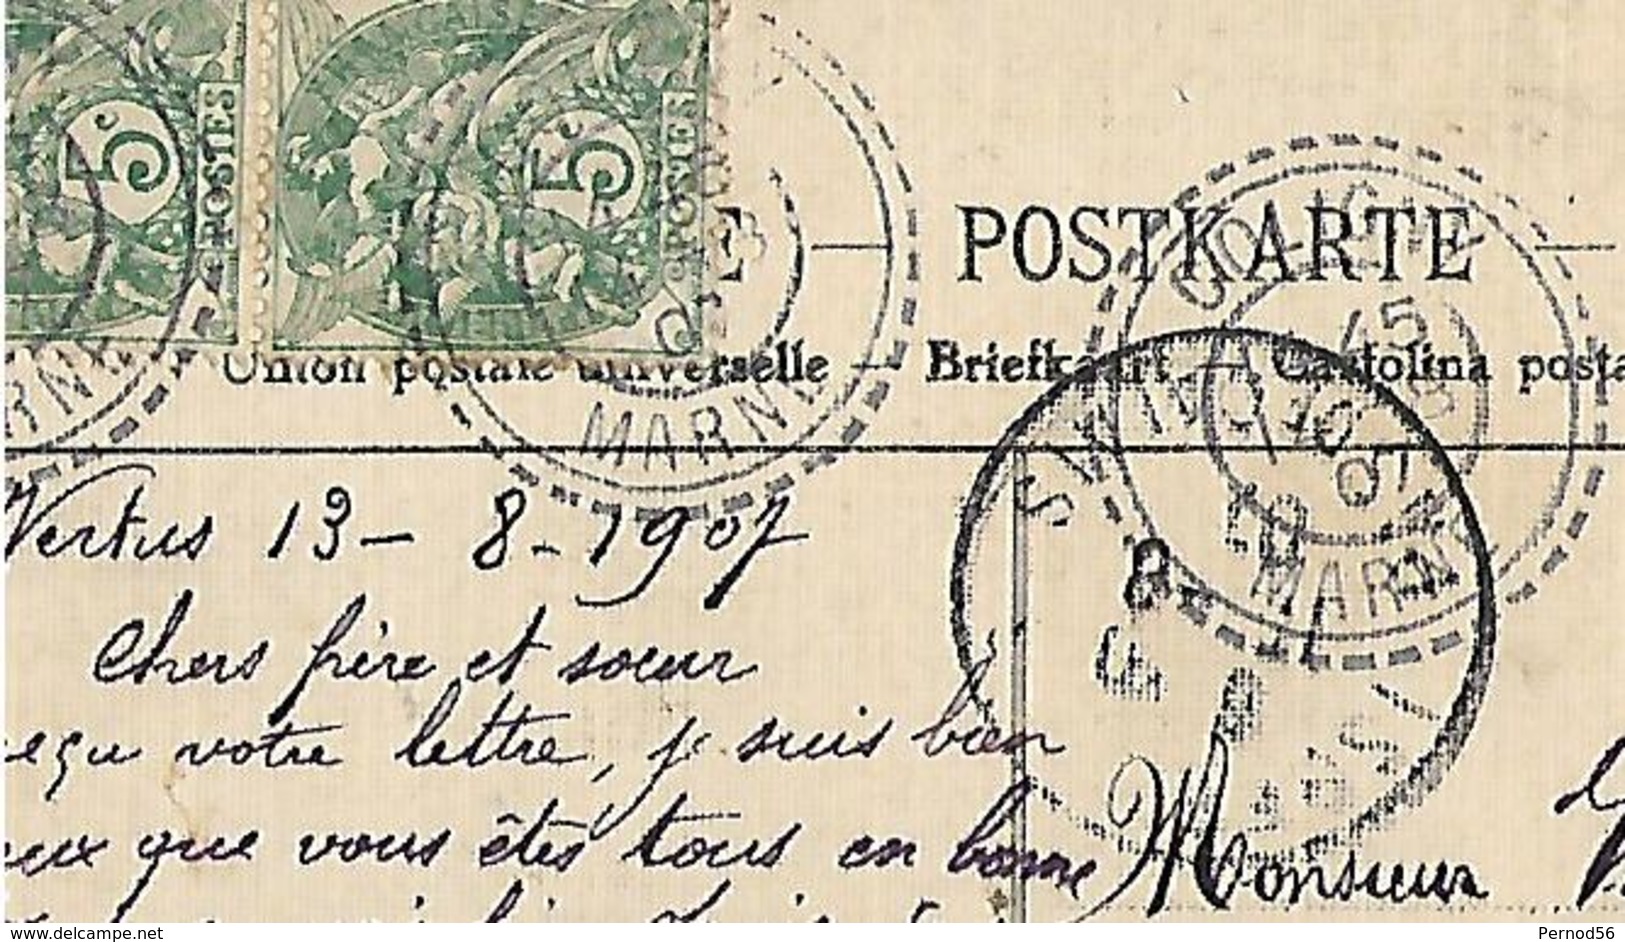 5c POSTES 5c POSTES
POSTKARTE
Union postale universelle — Briefkaart — Cartolina posta
MARNE MARNE
15
07
MARNE
Vertus 13 - 8 - 1907
Chers frère et soeur
eçu votre lettre, je suis bien
eux que vous êtes tous en bonne
Monsieur
www.delcampe.net
Pernod56